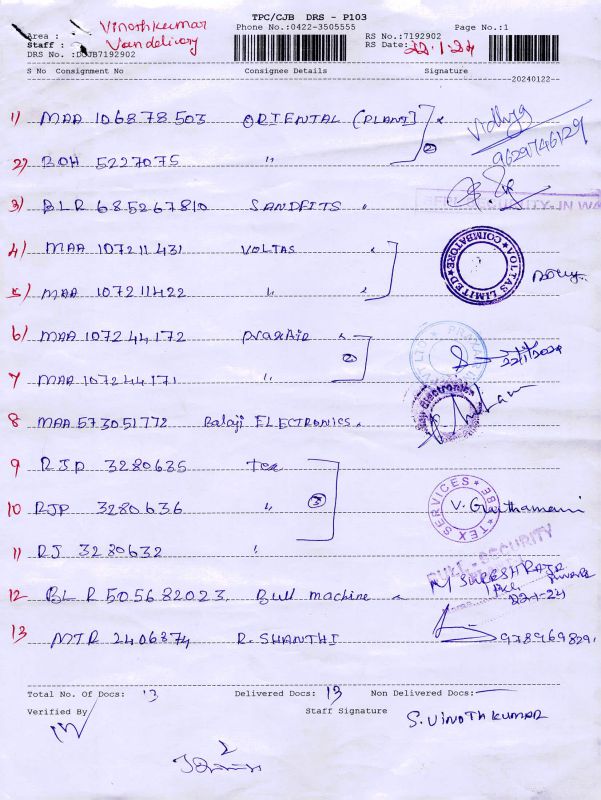 TPC/CJB DRS - P103
Phone No.:0422-3505555 Page No.:1
Area : Vinothkumar
Staff : Van delivery
RS No.:7192902
RS Date: 22.1.24
DRS No. :DCJB7192902
S No Consignment No Consignee Details Signature
20240122
1) MAA 106878503 ORIENTAL (PLANT) Vidhya
2) BOH 5227075 " 2 9629746129
3) BLR 685267810 SANDFITS
4) MAA 107211431 VOLTAS VOLTAS LIMITED COIMBATORE
5) MAA 107211422 "
6) MAA 107244172 praxAir 2 22/1/2024
7 MAA 107244171 "
8 MAA 573051772 Balaji ELECTRONICS Electronics
9 RJP 3280635 Tex
10 RJP 3280636 " 3 TEX SERVICES CBE V. Gowthamani
11 RJ 3280632 "
BULL - SECURITY
12 BLR 505682023 Bull machine M SURESH RAJA
22-1-24
13 MTR 2406374 R. SHANTHI
Total No. Of Docs: 13 Delivered Docs: 13 Non Delivered Docs:
Verified By Staff Signature S. VINOTHKUMAR